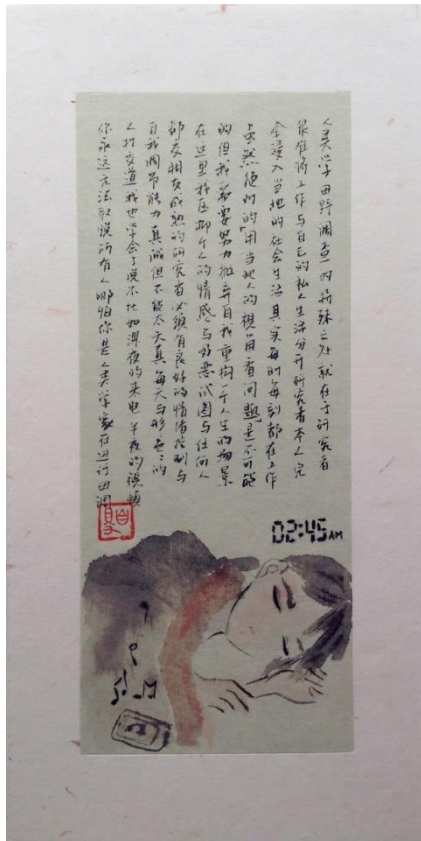 人类学田野调查的特殊之处就在于研究者
很难将工作与自己的私人生活分开研究者本人完
全浸入当地的社会生活其实每时每刻都在工作
虽然绝对的“用当地人的视角看问题”是不可能
的但我需要努力抛弃自我重构一个人生的场景
在这里我压抑个人的情感与好恶试图与任何人
都友相友成熟的研究者必须有良好的情绪控制与
自我调节能力真诚但不能太天真每天与形色色的
人打交道我也学会了说不比如深夜的来电半夜的视频
你永远无法取悦所有人哪怕你是人类学家在进行田调
02:45AM